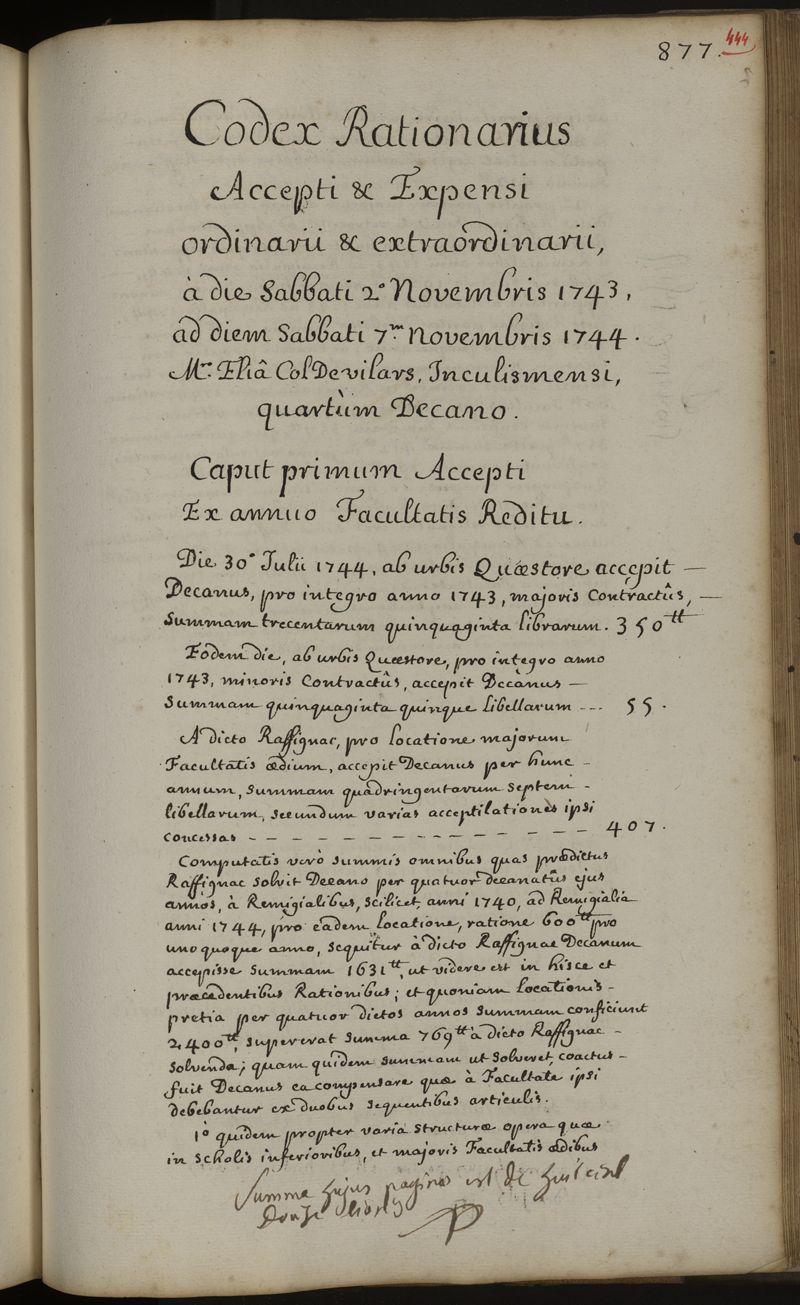 877. 444
Codex Rationarius
Accepti & Expensi
ordinarii & extraordinarii,
à die Sabbati 2ᵃ Novembris 1743,
ad diem Sabbati 7ᵐ Novembris 1744.
Mʳᵒ Eliâ Col De vilars, Inculismensi,
quartùm Decano.
Caput primum Accepti
Ex annuo Facultatis Reditu.
Die 30ᵃ Julii 1744, ab urbis Quæstore accepit —
Decanus, pro integro anno 1743, majoris Contractûs, —
Summam trecentarum quinquaginta librarum. 350ᵗᵗ
Eodem die, ab urbis Quæstore, pro integro anno
1743, minoris Contractûs, accepit Decanus —
Summam quinquaginta quinque libellarum --- 55.
A dicto Raffignac, pro locatione majorum
Facultatis ædium, accepit Decanus per hunc -
annum, summam quadringentarum septem -
libellarum, secundum varias acceptilationes ipsi
concessas - - - - - - - - - - - - - - - 407.
Computatis verò summis omnibus quas prædictus
Raffignac solvit Decano per quatuor decanatûs ejus
annos, à Remigialibus, scilicet, anni 1740, ad Remigialia
anni 1744, pro eadem locatione, ratione 600ᵗᵗ pro
uno quoque anno, sequitur à dicto Raffignac Decanum
accepisse summam 1631ᵗᵗ, ut videre est in hisce et
præcedentibus Rationibus; et quoniam locationis -
pretia per quatuor dictos annos summam conficiunt
2,400ᵗᵗ, supererat summa 769ᵗᵗ à dicto Raffignac -
solvenda; quam quidem summam ut solveret, coactus -
fuit Decanus ea compensare quæ à Facultate ipsi
debebantur ex duobus sequentibus articulis.
1º quidem propter varia structuræ opera quæ
in scholis inferioribus, et majoris Facultatis ædibus
Summa hujus paginæ est de huit cent
douze livres